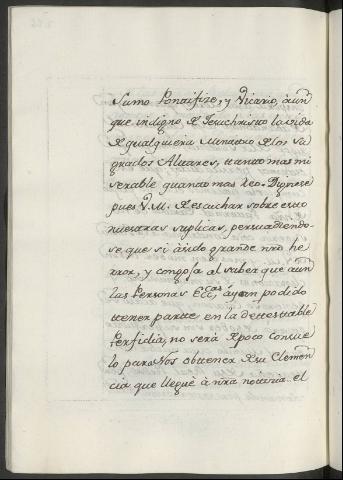 Sumo Pontifize, y Vicario, aun
que indigno de Jesuchristo la vida
de qualquiera Ministro de los Sa
grados Altares, tanto mas mi
serable quanto mas reo. Dignese
pues V. M. de escuchar sobre esto
nuestras suplicas, persuadiendo-
se que si a sido grande nro ho
rror, y congoja al saber que aun
las Personas Eccas, ayan podido
tener parte en la detestable
Perfidia, no será de poco consue
lo para Nos obtener de su Clemen
cia que llegue à nra noticia el